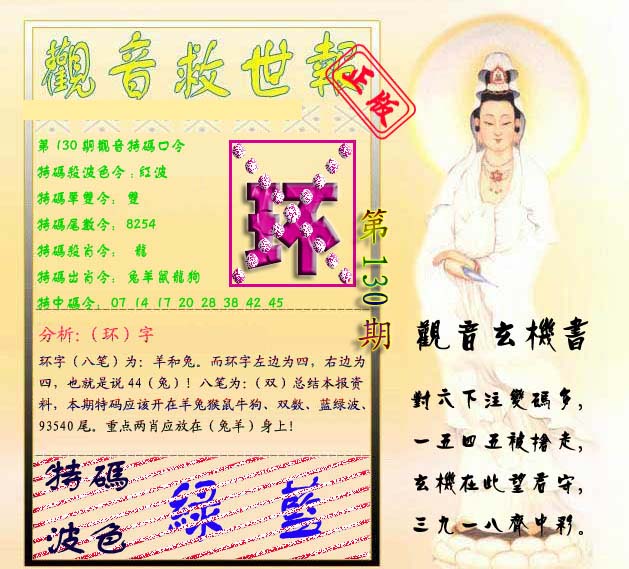 觀音救世報
正版
第130期觀音特碼口令
特碼殺波色令:紅波
特碼單雙令: 雙
特碼尾數令: 8254
特碼殺肖令: 龍
特碼出肖令: 兔羊鼠龍狗
特中碼令: 07 14 17 20 28 38 42 45
环
第130期
分析:(环)字
环字(八笔)为: 羊和兔。而环字左边为四, 右边为
四, 也就是说 44 (兔)! 八笔为: (双) 总结本报资
料, 本期特码应该开在羊兔猴鼠牛狗、双数、蓝绿波、
93540 尾。重点两肖应放在 (兔羊) 身上!
特碼
波色
綠 藍
觀音玄機書
對六下注變碼多,
一五四五被搶走,
玄機在此望看守,
三九一八齊中彩。